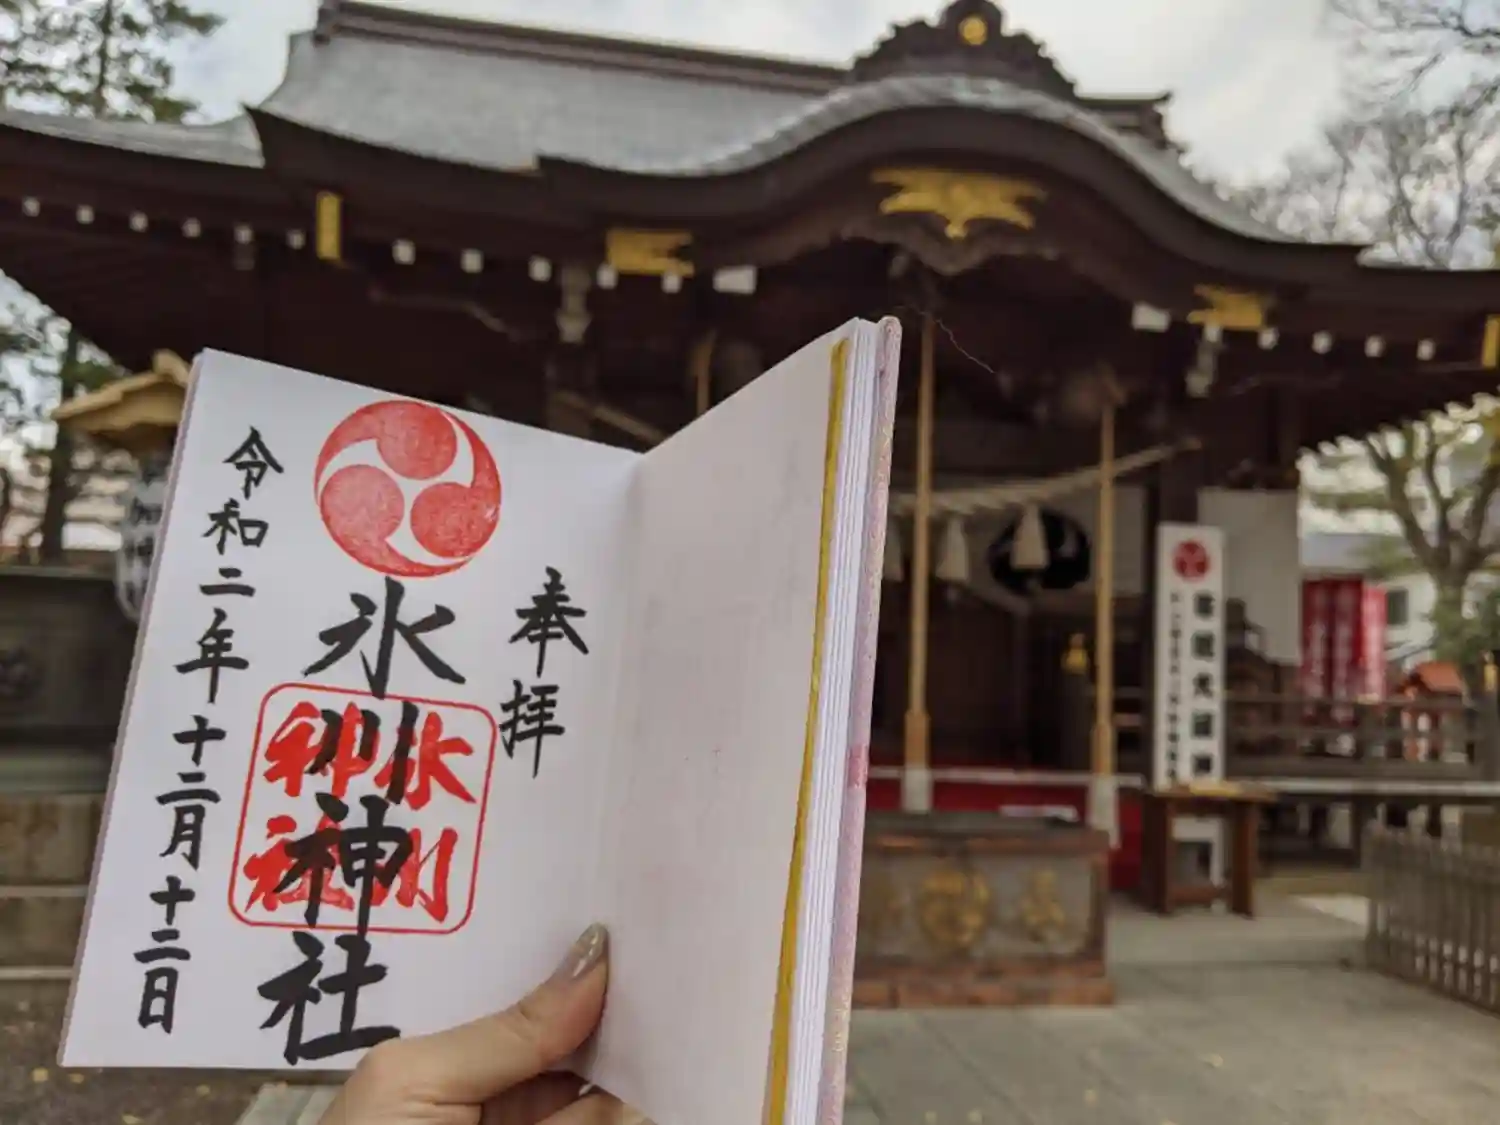 奉拝
氷川神社
氷川
神社
令和二年十二月十二日